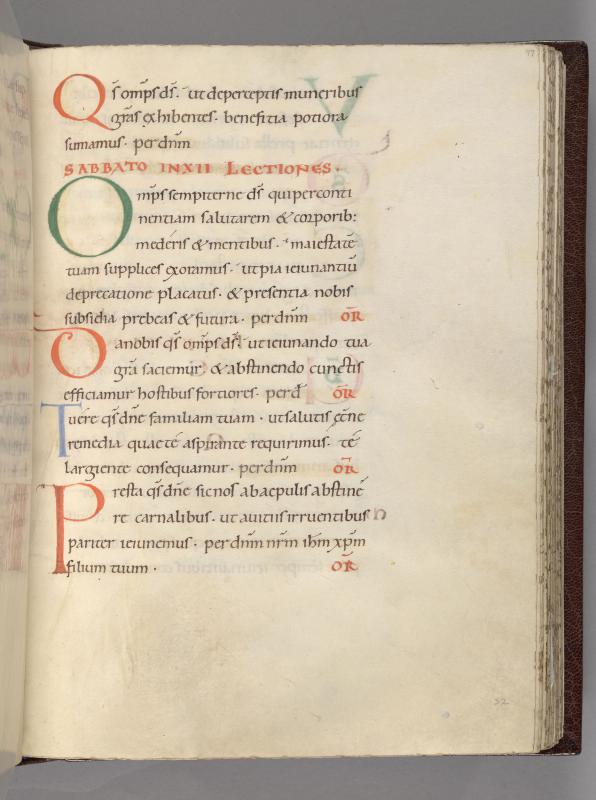 Qs omps ds. ut de perceptis muneribus
gras exhibentes. beneficia potiora
sumamus. per dnm
SABBATO IN XII LECTIONES.
Omps sempiterne ds qui per conti
nentiam salutarem & corporib:
mederis & mentibus. maiestate
tuam supplices exoramus. ut pia ieiunantiu
deprecatione placatus. & presentia nobis
subsidia prebeas & futura. per dnm OR
Da nobis qs omps ds ut ieiunando tua
gra saciemur & abstinendo cunctis
efficiamur hostibus fortiores. per d OR
Tuere qs dne familiam tuam. ut salutis ęterne
remedia quae te aspirante requirimus. te
largiente consequamur. per dnm OR
Presta qs dne sic nos ab aepulis abstine
re carnalibus. ut a uitiis irruentibus
pariter ieiunemus. per dnm nrm ihm xpm
filium tuum. OR
52